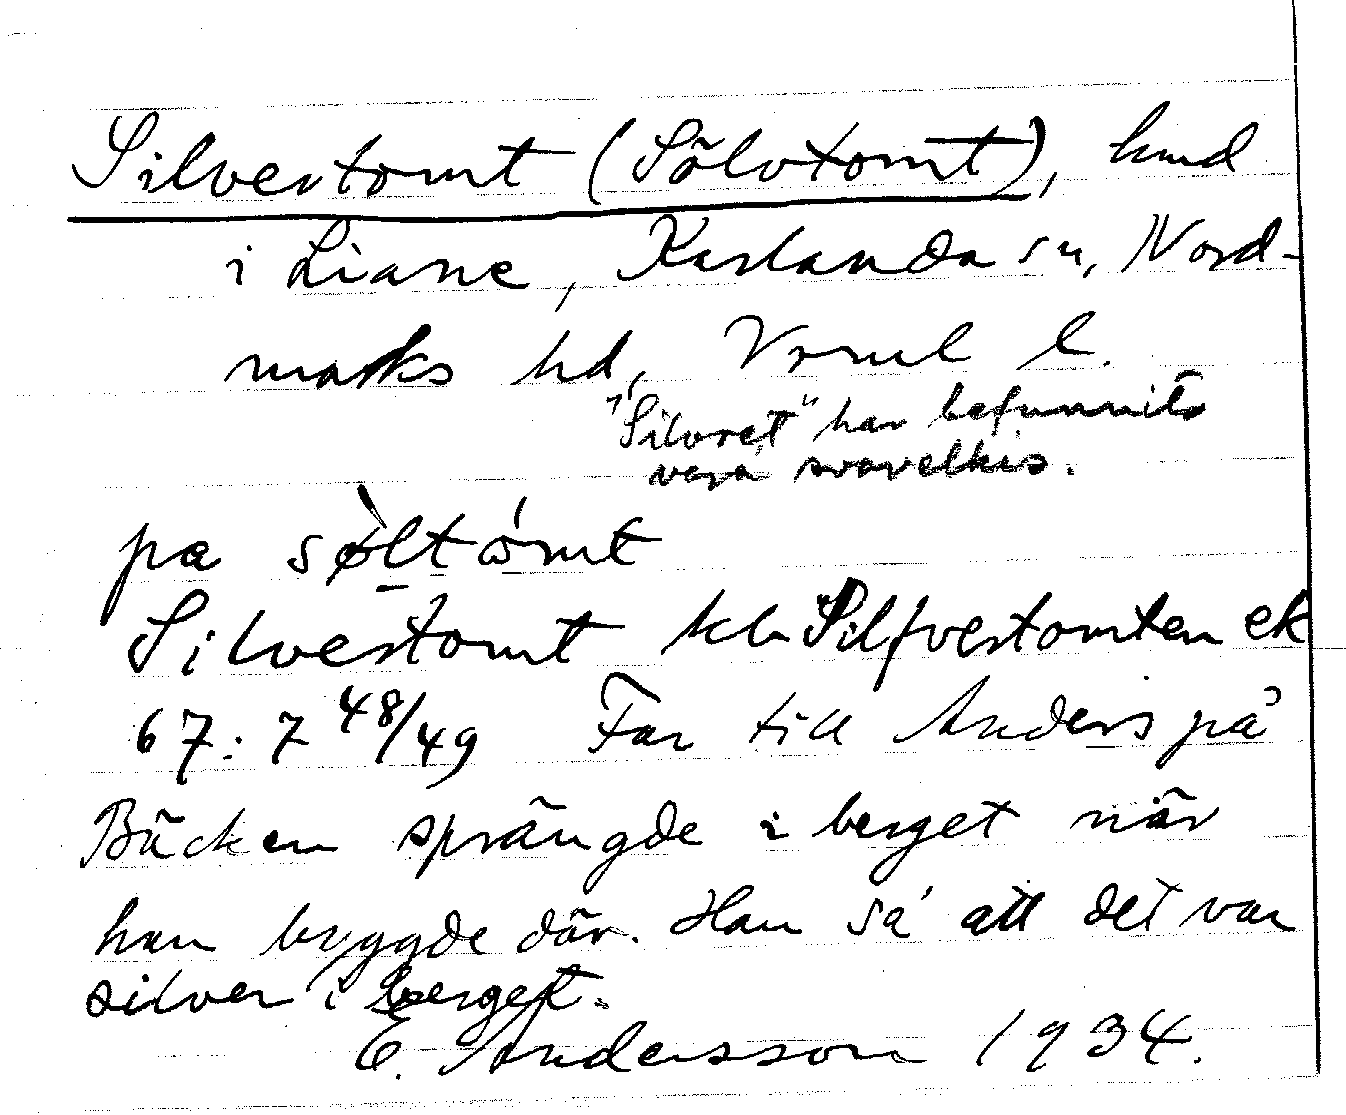 Silvertomt (Sölvtomt), hmd
i Liane, Karlanda sn, Nord-
marks hd, Vrml l.
"Silvret" har befunnits
vara svavelkis.
pa sø̀ltómt
Silvertomt kln Silfvertomten ek
67:7 48/49 Far till Anders på
Bäcken sprängde i berget när
han byggde där. Han sa' att det var
silver i berget.
E. Andersson 1934.